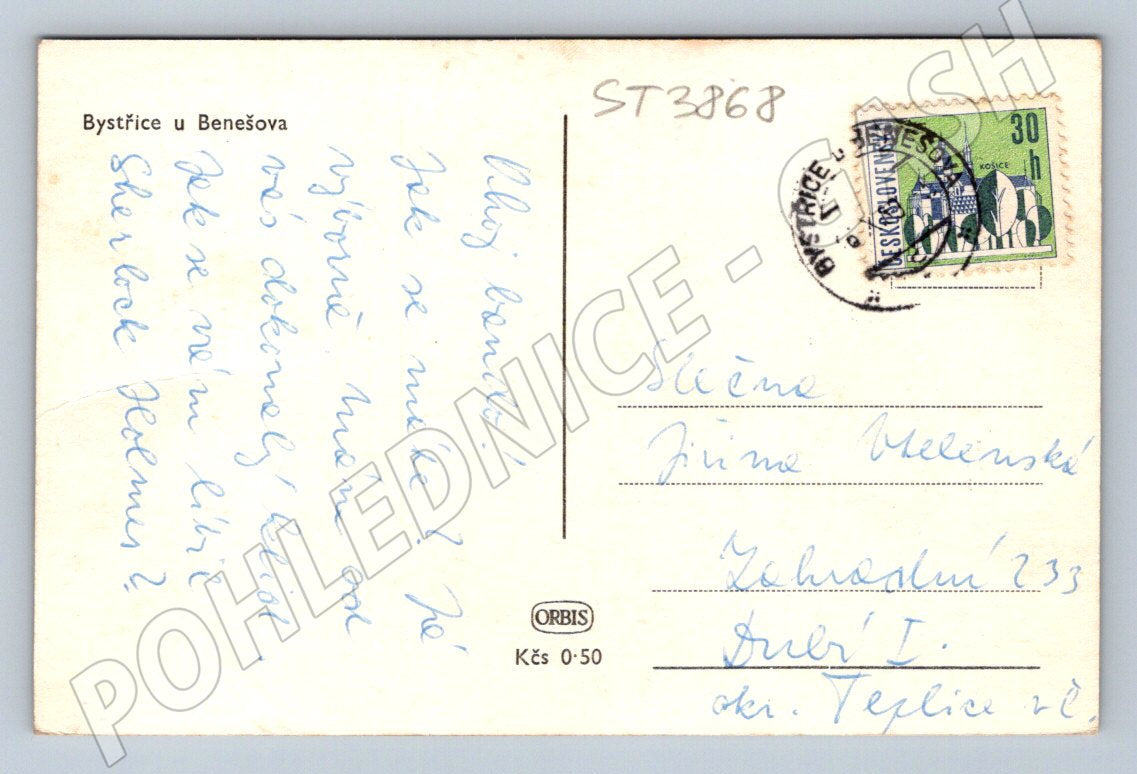 Bystřice u Benešova
ST3868
ČESKOSLOVENSKO
30
h
KOŠICE
BYSTŘICE u BENEŠOVA
Ahoj bando!
Jak se máte? Já
výborně mám od
vás dokonalý klid.
Jak se vám líbil
Sherlock Holmes?
Slečna
Jiřina
Zahradní 233
Dubí I.
okr. Teplice v Č.
ORBIS
Kčs 0·50
POHLEDNICE - GASH